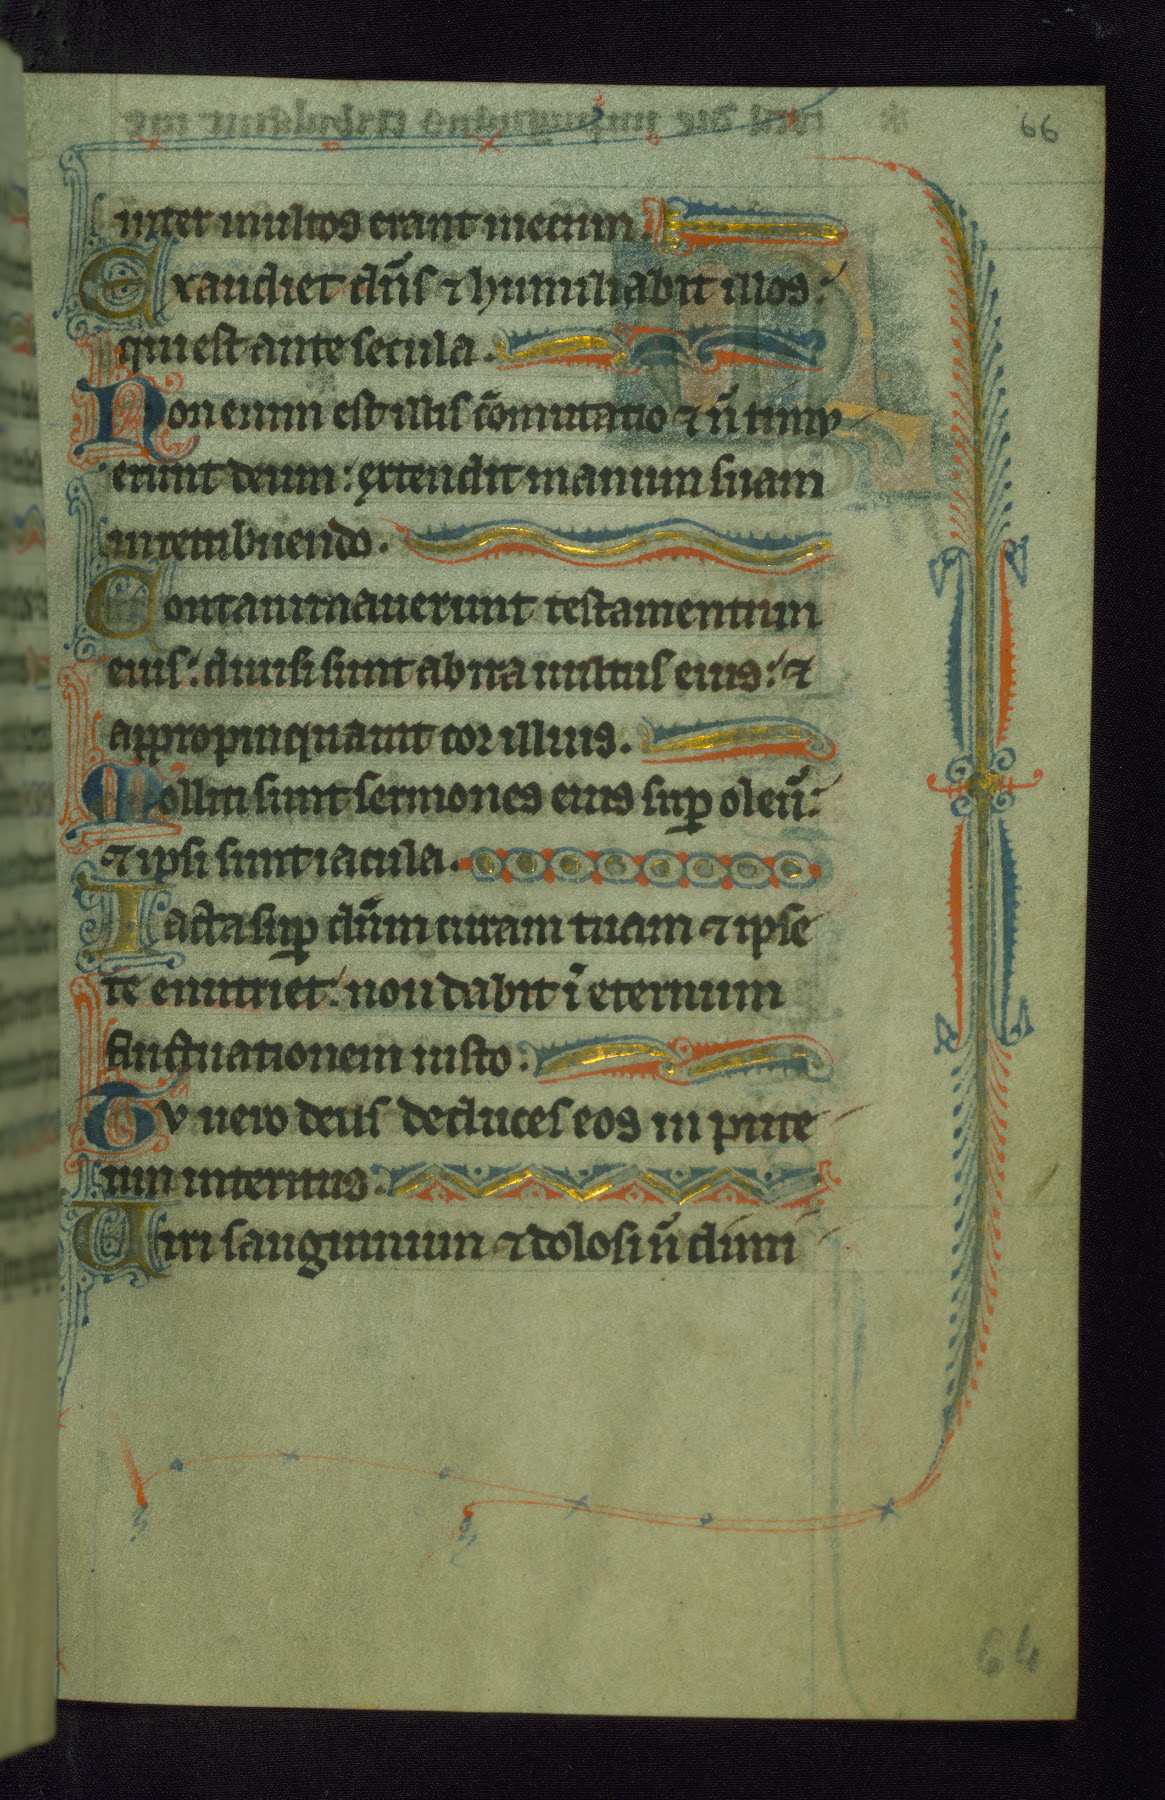 66
inter multos erant mecum.
Exaudiet dn̄s ⁊ humiliabit illos:
qui est ante secula.
Non enim est illis cōmutatio ⁊ n̄ timu
erunt deum: extendit manum suam
in retribuendo.
Contaminauerunt testamentum
eius: diuisi sunt ab ira uultus eius: ⁊
appropinquauit cor illius.
Molliti sunt sermones eius sup̄ oleū:
⁊ ipsi sunt iacula.
Iacta sup̄ dn̄m curam tuam ⁊ ipse
te enutriet: non dabit ī eternum
fluctuationem iusto.
Tv uero deus deduces eos in pute
um interitus.
Uiri sanguinum ⁊ dolosi n̄ dimi
64